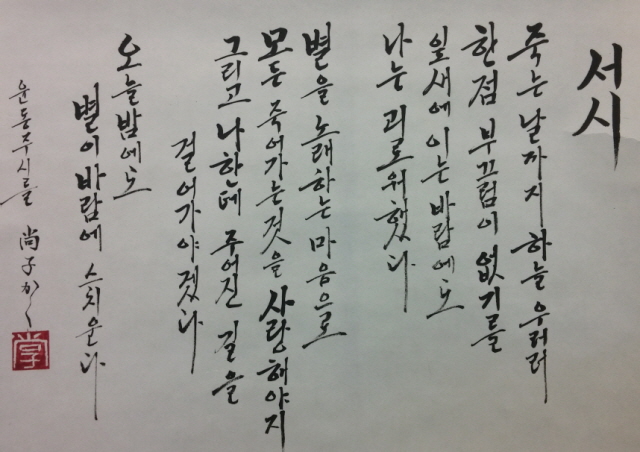 서시
죽는 날까지 하늘 우러러
한점 부끄럼이 없기를
잎새에 이는 바람에도
나는 괴로워했다
별을 노래하는 마음으로
모든 죽어가는것을 사랑해야지
그리고 나한테 주어진 길을
걸어가야겠다
오늘밤에도
별이 바람에 스치운다
윤동주 시를 尚子かく